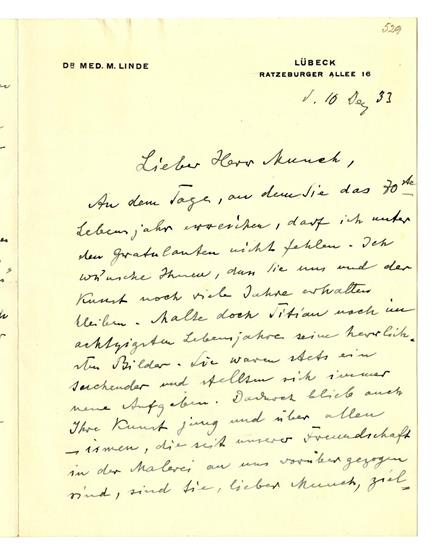 529
DR MED. M. LINDE
LÜBECK
RATZEBURGER ALLEE 16
d. 10 Dez 33
Lieber Herr Munch,
An dem Tage, an dem Sie das 70te
Lebensjahr erreichen, darf ich unter
den Gratulanten nicht fehlen. Ich
wünsche Ihnen, dass Sie uns und der
Kunst noch viele Jahre erhalten
bleiben. Malte doch Titian noch im
achtzigsten Lebensjahre seine herrlich-
sten Bilder. Sie waren stets ein
suchender und stellten sich immer
neue Aufgaben. Dadurch blieb auch
Ihre Kunst jung und über allen
-ismen, die seit unserer Freundschaft
in der Malerei an uns vorübergezogen
sind, sind Sie, lieber Munch, ziel-